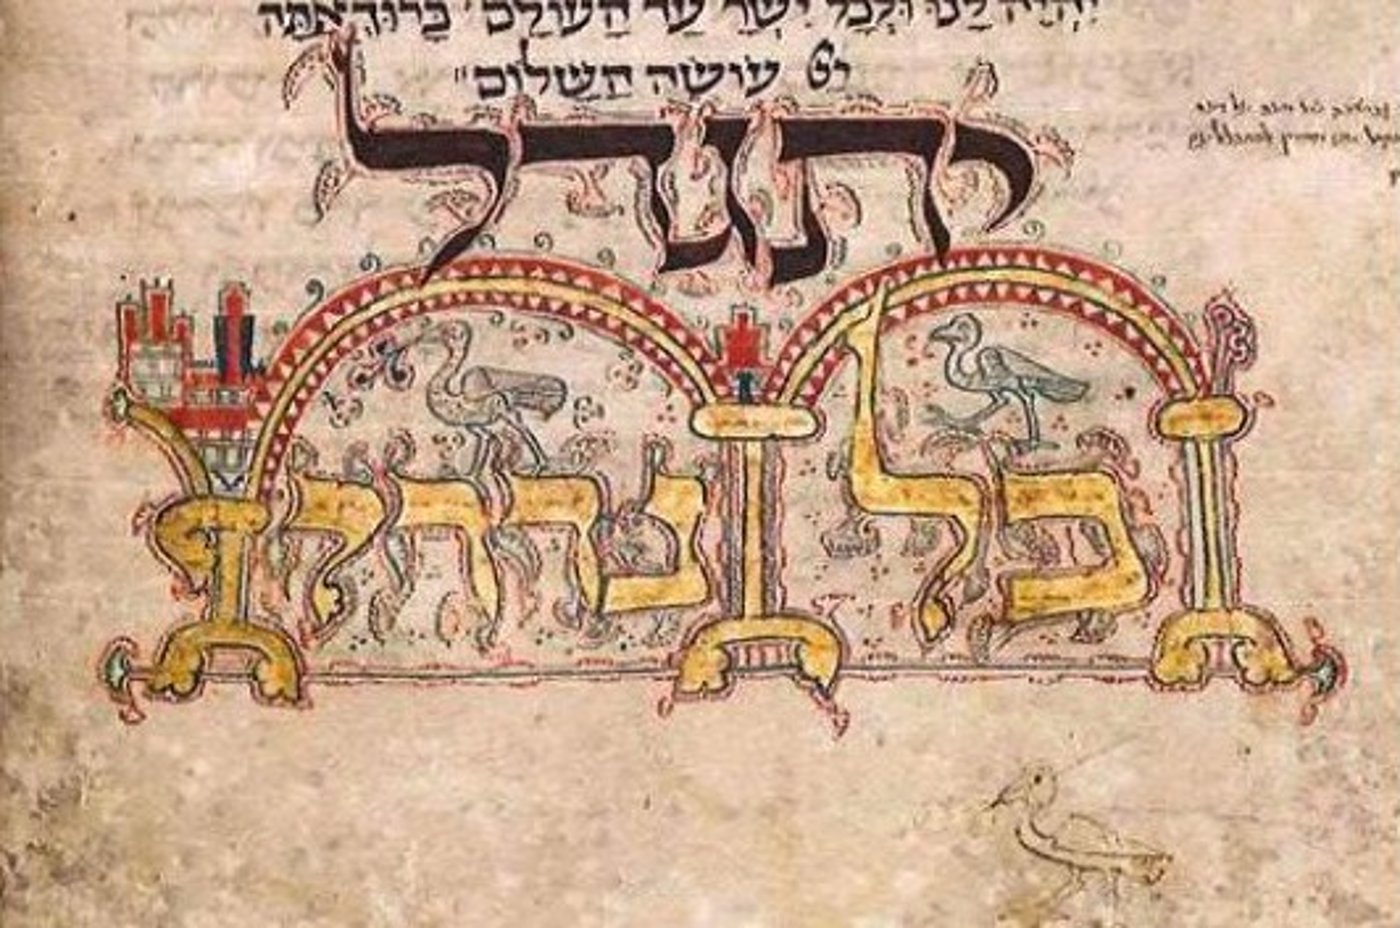 יהיה לנו ולכל ישר עד העולם ברוך אתה
יי עושה השלום
יתגדל
כל נדרי